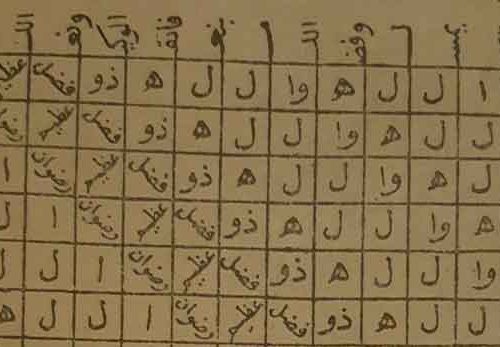 ا ل ل ه وا ل ل ه ذو فضل عظيم
ل ل ه وا ل ل ه ذو فضل عظيم رضوان
ل ه وا ل ل ه ذو فضل عظيم رضوان ا
ه وا ل ل ه ذو فضل عظيم رضوان ا ل
وا ل ل ه ذو فضل عظيم رضوان ا ل ل
ل ل ه ذو فضل عظيم رضوان ا ل ل ه